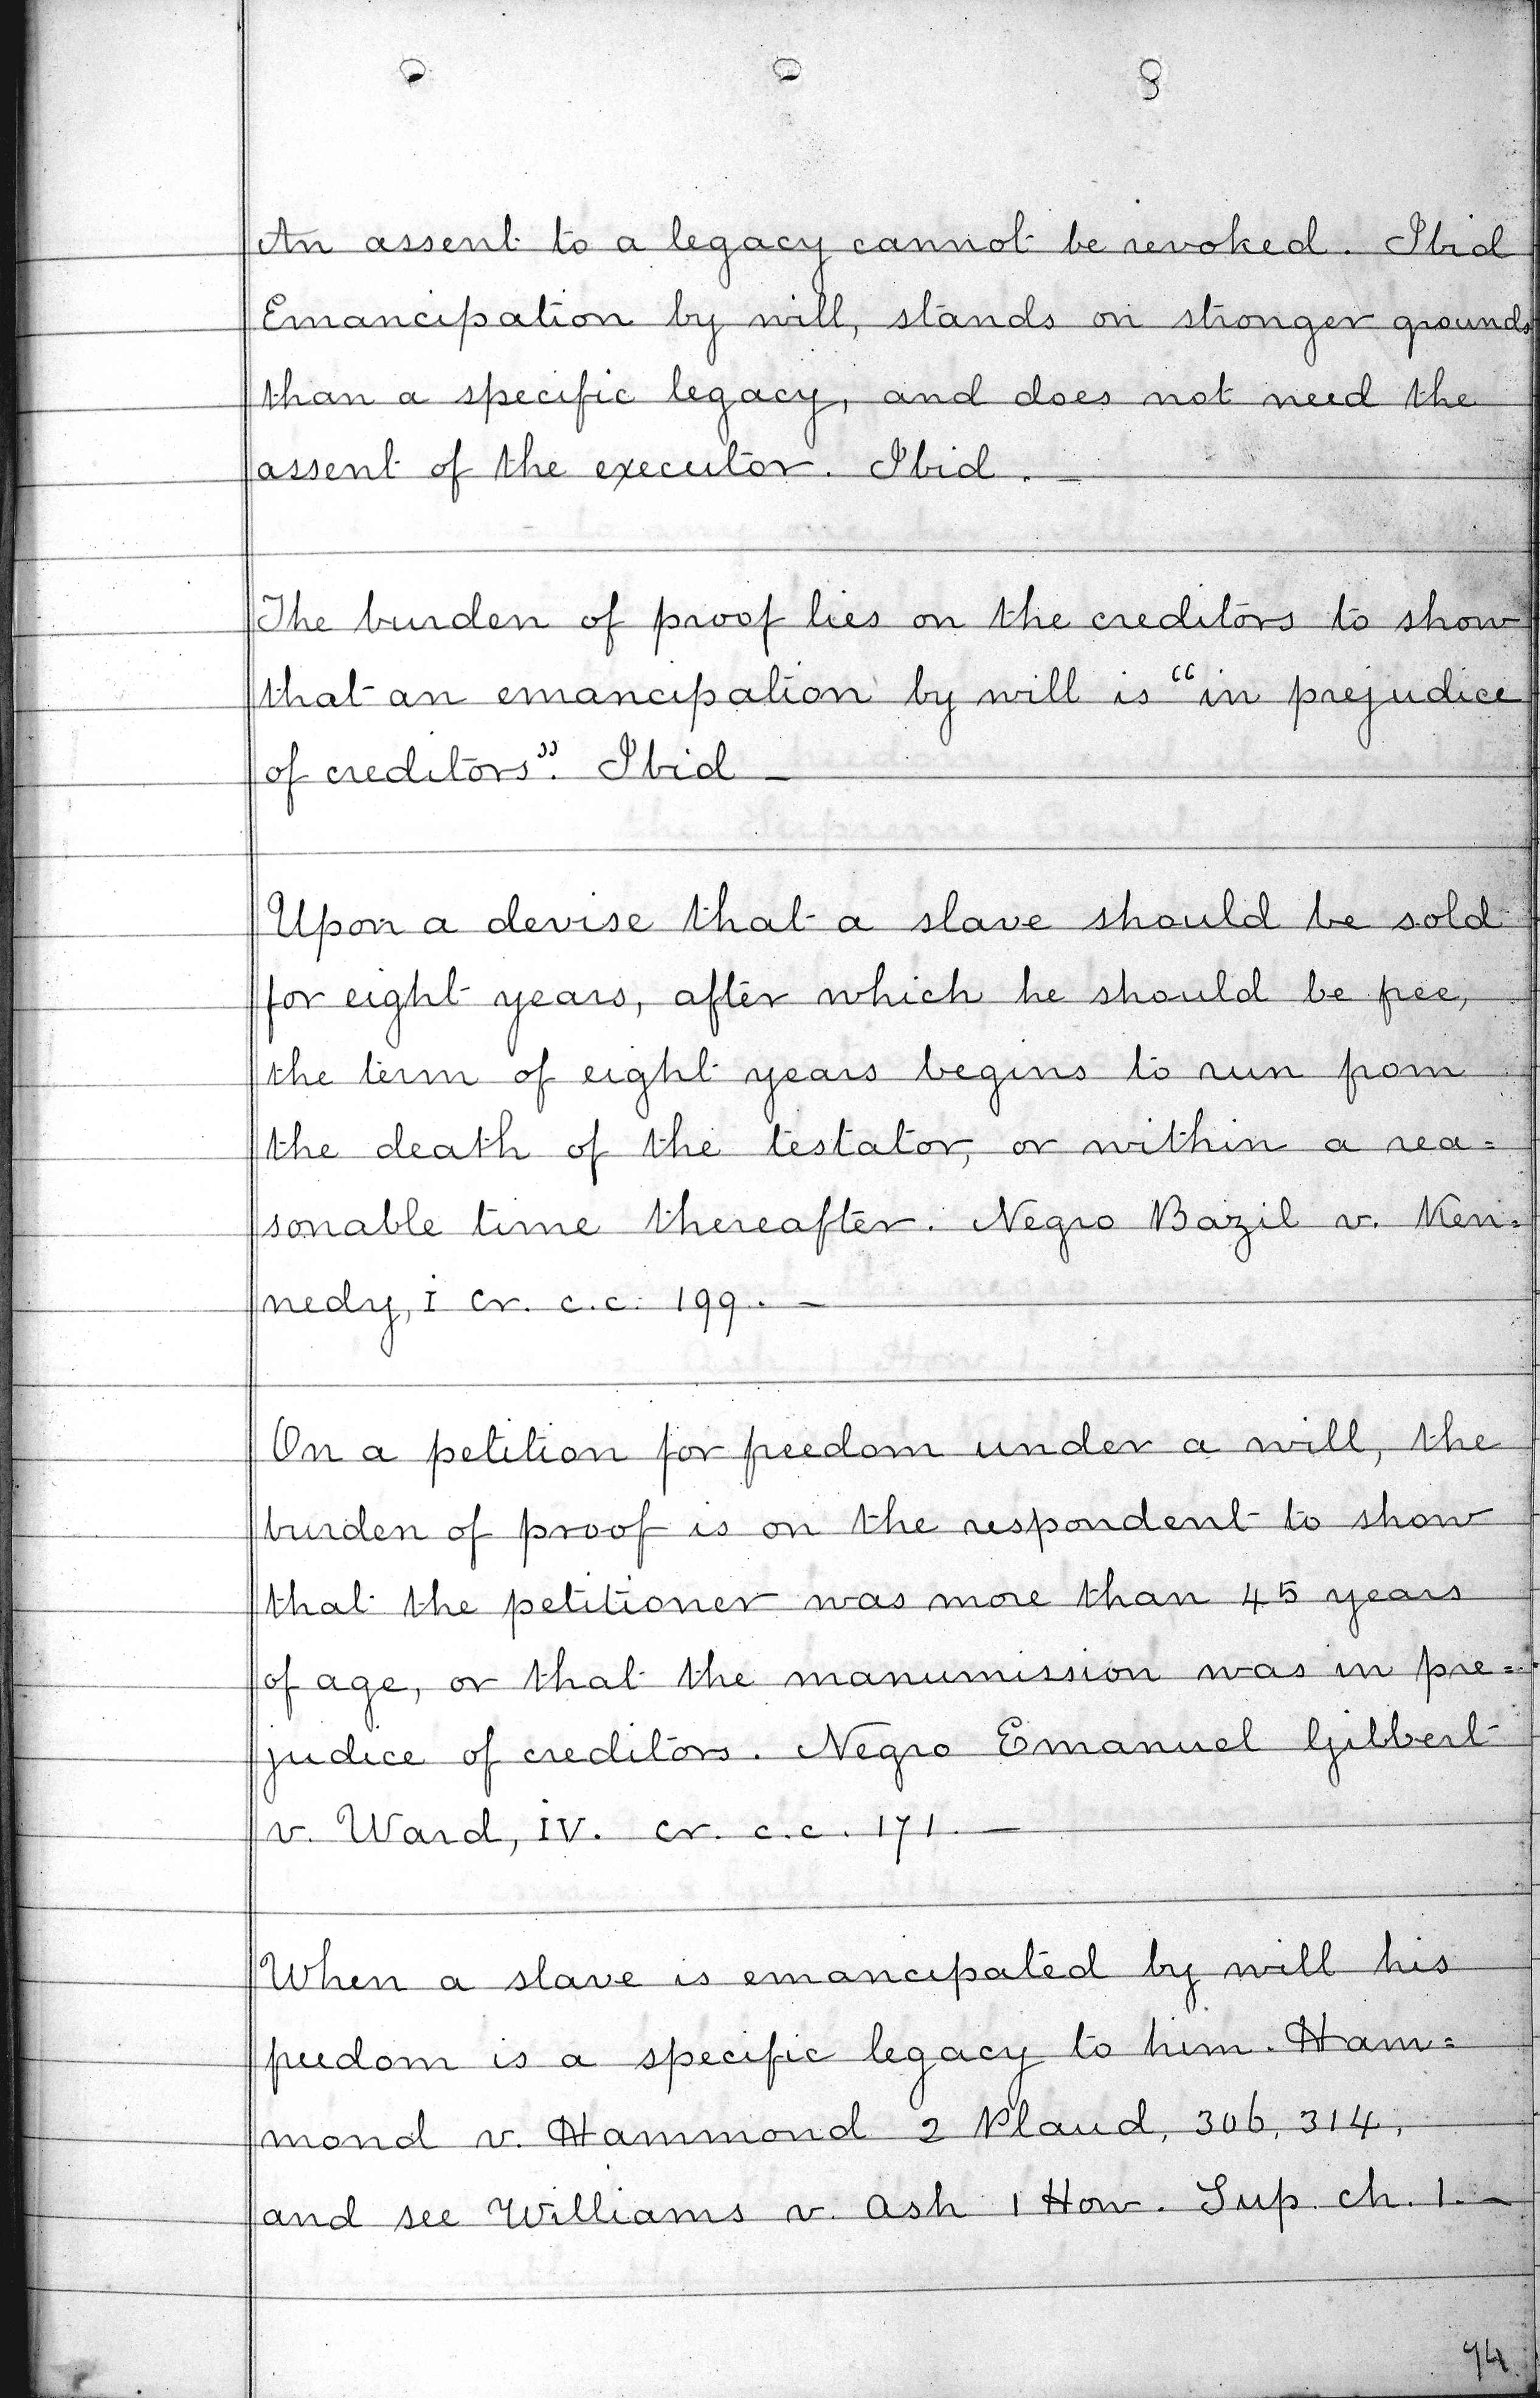 An assent to a legacy cannot be revoked. Ibid
Emancipation by will, stands on stronger grounds
than a specific legacy, and does not need the
assent of the executor. Ibid. —
The burden of proof lies on the creditors to show
that an emancipation by will is "in prejudice
of creditors". Ibid —
Upon a devise that a slave should be sold
for eight years, after which he should be free,
the term of eight years begins to run from
the death of the testator, or within a rea=
sonable time thereafter. Negro Bazil v. Ken=
nedy, I Cr. c.c. 199. —
On a petition for freedom under a will, the
burden of proof is on the respondent to show
that the petitioner was more than 45 years
of age, or that the manumission was in pre=
judice of creditors. Negro Emanuel Gilbert
v. Ward, IV. Cr. c.c. 171. —
When a slave is emancipated by will his
freedom is a specific legacy to him. Ham=
mond v. Hammond 2 Bland, 306, 314,
and see Williams v. Ash 1 How. Sup. ch. 1. —